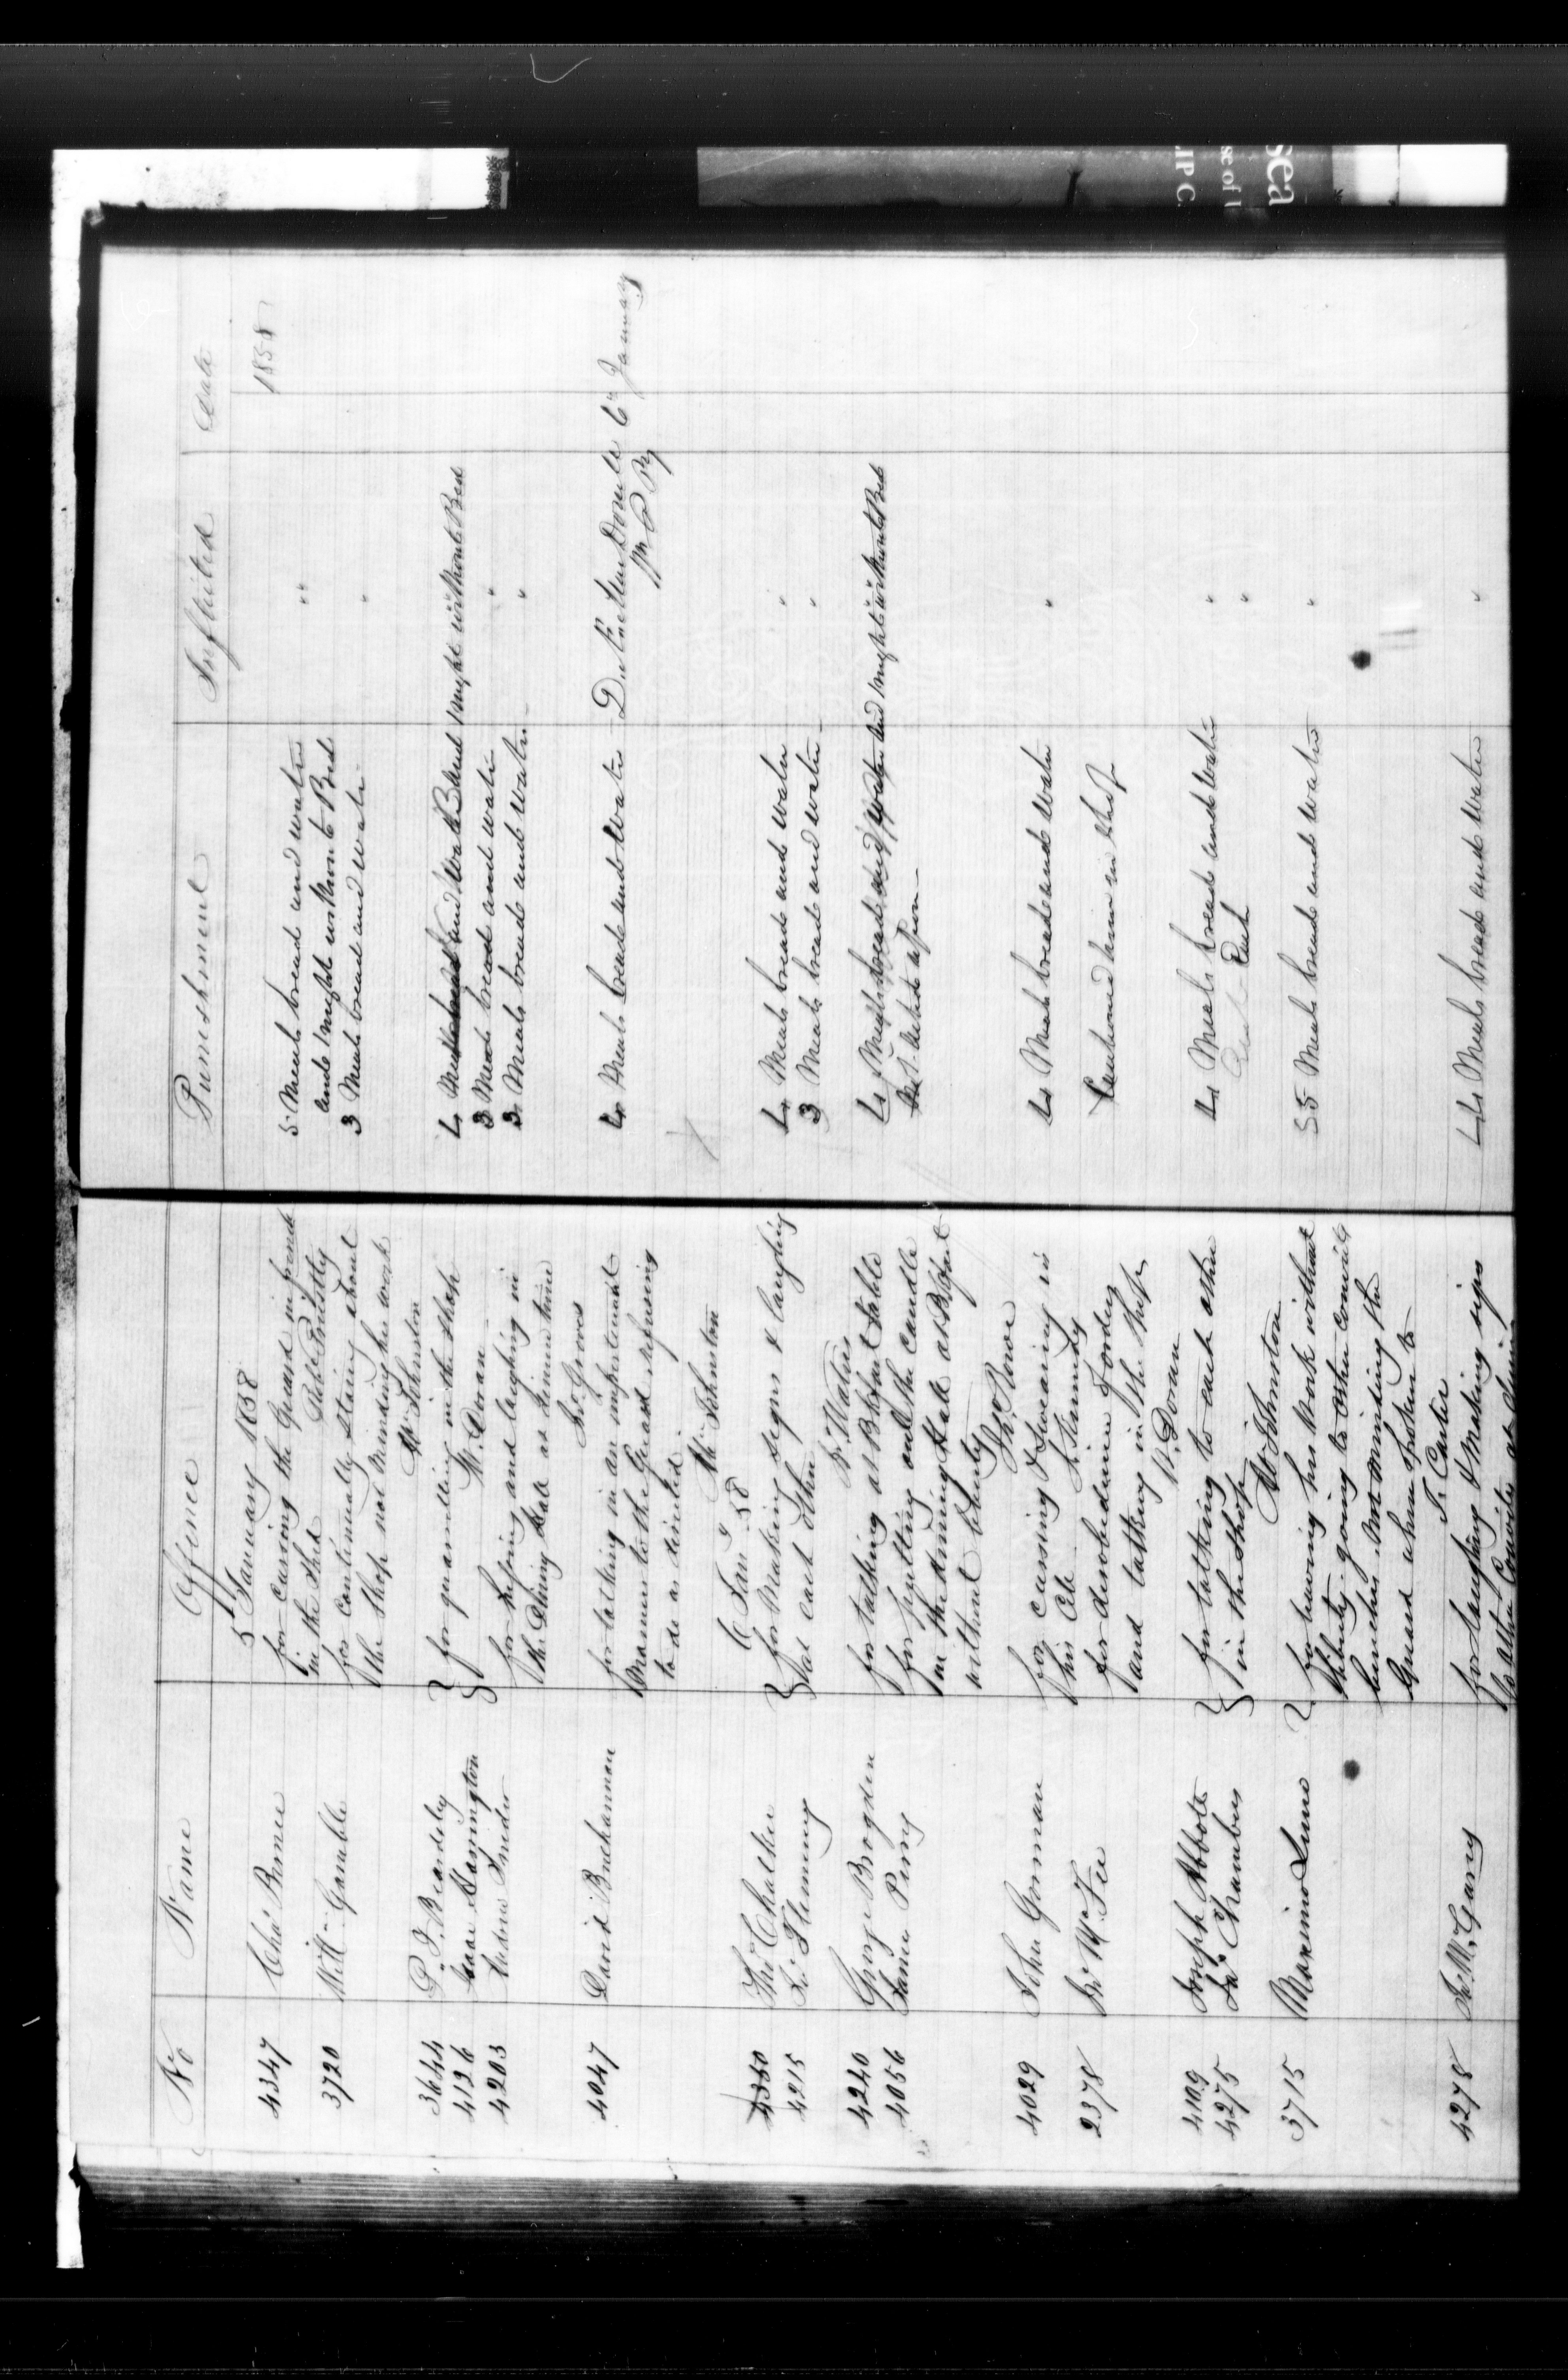 No Name Offence Punishment Inflicted Date
5th January 1858 1858
4347 Chas Burnee for Cursing the Guard in french 5 Meals bread and water "
in the Shed Robt Priestly and 1 night without Bed "
3720 Willm Gamble for Continually staring about 3 Meals bread and water "
the Shop not Minding his work
Wm Johnston
3644 P. J. Beardsley } for quarrelling in the Shop 4 and 1 night without Bed
4126 Isaac Harrington W. Doran 3 Meals bread and water "
4203 for and laughing in 3 Meals bread and water "
the Dining Hall at dinner time
Jno Graves
4047 David Buchannan for talking in an impertinent 4 Meals bread and water 6th January
Manner to the Guard refusing
to do as directed
Wm Johnston
6 Jany 58
4350 Thos Chalker } for Making signs & laughing 4 Meals bread and water "
4215 Jno Flemming at each other 3 Meals bread and water "
Waters
4240 George Brogden for talking at Bkfast table 4 Meals bread and water and 1 night without Bed
4056 James Perry for putting out the Candle
in the dining Hall at Bkfast
without liberty
Thos Rowe
4029 John Gorman for Cursing & Swearing in 4 Meals bread and water "
his Cell
2378 Jno McFee for disobedience Cautioned him in Shop
and talking in the Shop
W. Doran
4109 Joseph Abbott } for talking to each other 4 Meals bread and water "
4275 Jas Chambers in the Shop Each "
Wm Johnston
3715 Maximo Juno } for leaving his work without 5 Meals bread and water "
liberty going to other Convicts
benches. not minding the
Guard when spoken to
J. Carter
4278 Jno McGarry for laughing & Making signs 4 Meals bread and water "
to other Convicts at dinner